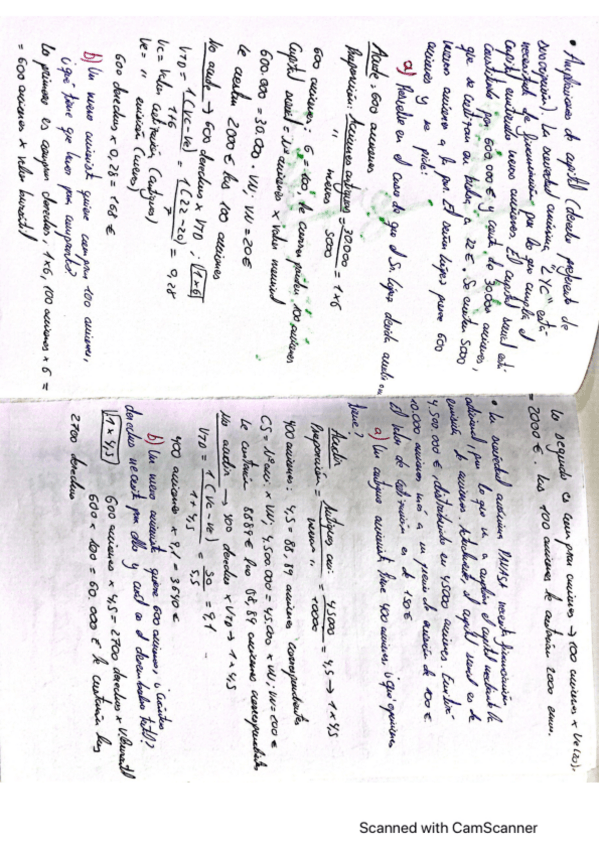 • Ampliaciones de capital (derecho preferente de
suscripción). La sociedad anónima "ZYC" está
necesitada de financiación por lo que amplía el
capital emitiendo nuevas acciones. El capital social está
constituido por 600.000 € y consta de 30000 acciones,
que se cotizan en bolsa a 22 €. Se emiten 5000
nuevas acciones a la par. El señor López posee 600
acciones y se pide:
a) Paralelo en el caso de que el Sr. López decida acudir o no
Acude: 600 acciones
Proporción: Acciones antiguas / nuevas = 30.000 / 5000 = 1x6
600 acciones : 6 = 100 le corresponden 100 acciones
Capital social = nº acciones x valor nominal
600.000 = 30.000 · VN; VN = 20 €
Le cuestan 2000 € las 100 acciones
No acude → 600 derechos x VTD ; 1x6
VTD = 1(Vc-Ve) / 1+6 = 1(22-20) / 7 = 0,28
Vc = valor cotización (antiguas)
Ve = " emisión (nuevas)
600 derechos x 0,28 = 168 €
b) Un nuevo accionista quiere comprar 100 acciones,
¿qué tiene que hacer para comprarlas?
Lo primero es comprar derechos: 1x6, 100 acciones x 6 =
= 600 acciones x valor
Lo segundo es comprar acciones → 100 acciones x Ve (20).
= 2000 €. Las 100 acciones le costarían 2000 euros.
• La sociedad anónima necesita financiación
adicional, por lo que va a ampliar el capital mediante la
emisión de acciones. Actualmente, el capital social es de
4.500.000 €, distribuido en 45000 acciones. Emitirá
10.000 acciones a un precio de emisión de 100 €.
El valor de cotización es de 150 €
a) Un antiguo accionista tiene 400 acciones ¿qué opciones
tiene?
Acudir
Proporción = Antiguas acci. / nuevas " = 45000 / 10000 = 4,5 → 1x4,5
400 acciones : 4,5 = 88,89 acciones correspondientes
CS = nº acci x VN; 4.500.000 = 45.000 x VN; VN = 100 €
Le costarían 8889 € las 88,89 acciones correspondientes
No acudir → 400 derechos x VTD → 1x4,5
VTD = 1(Vc-Ve) / 1+4,5 = 50 / 5,5 = 9,1
400 acciones x 9,1 = 3640 €
b) Un nuevo accionista quiere 600 acciones, ¿cuántos
derechos necesita para ello y cuál es el desembolso total?
1x4,5 600 acciones x 4,5 = 2700 derechos x
600 x 100 = 60.000 € le costarían las
2700 derechos
Scanned with CamScanner